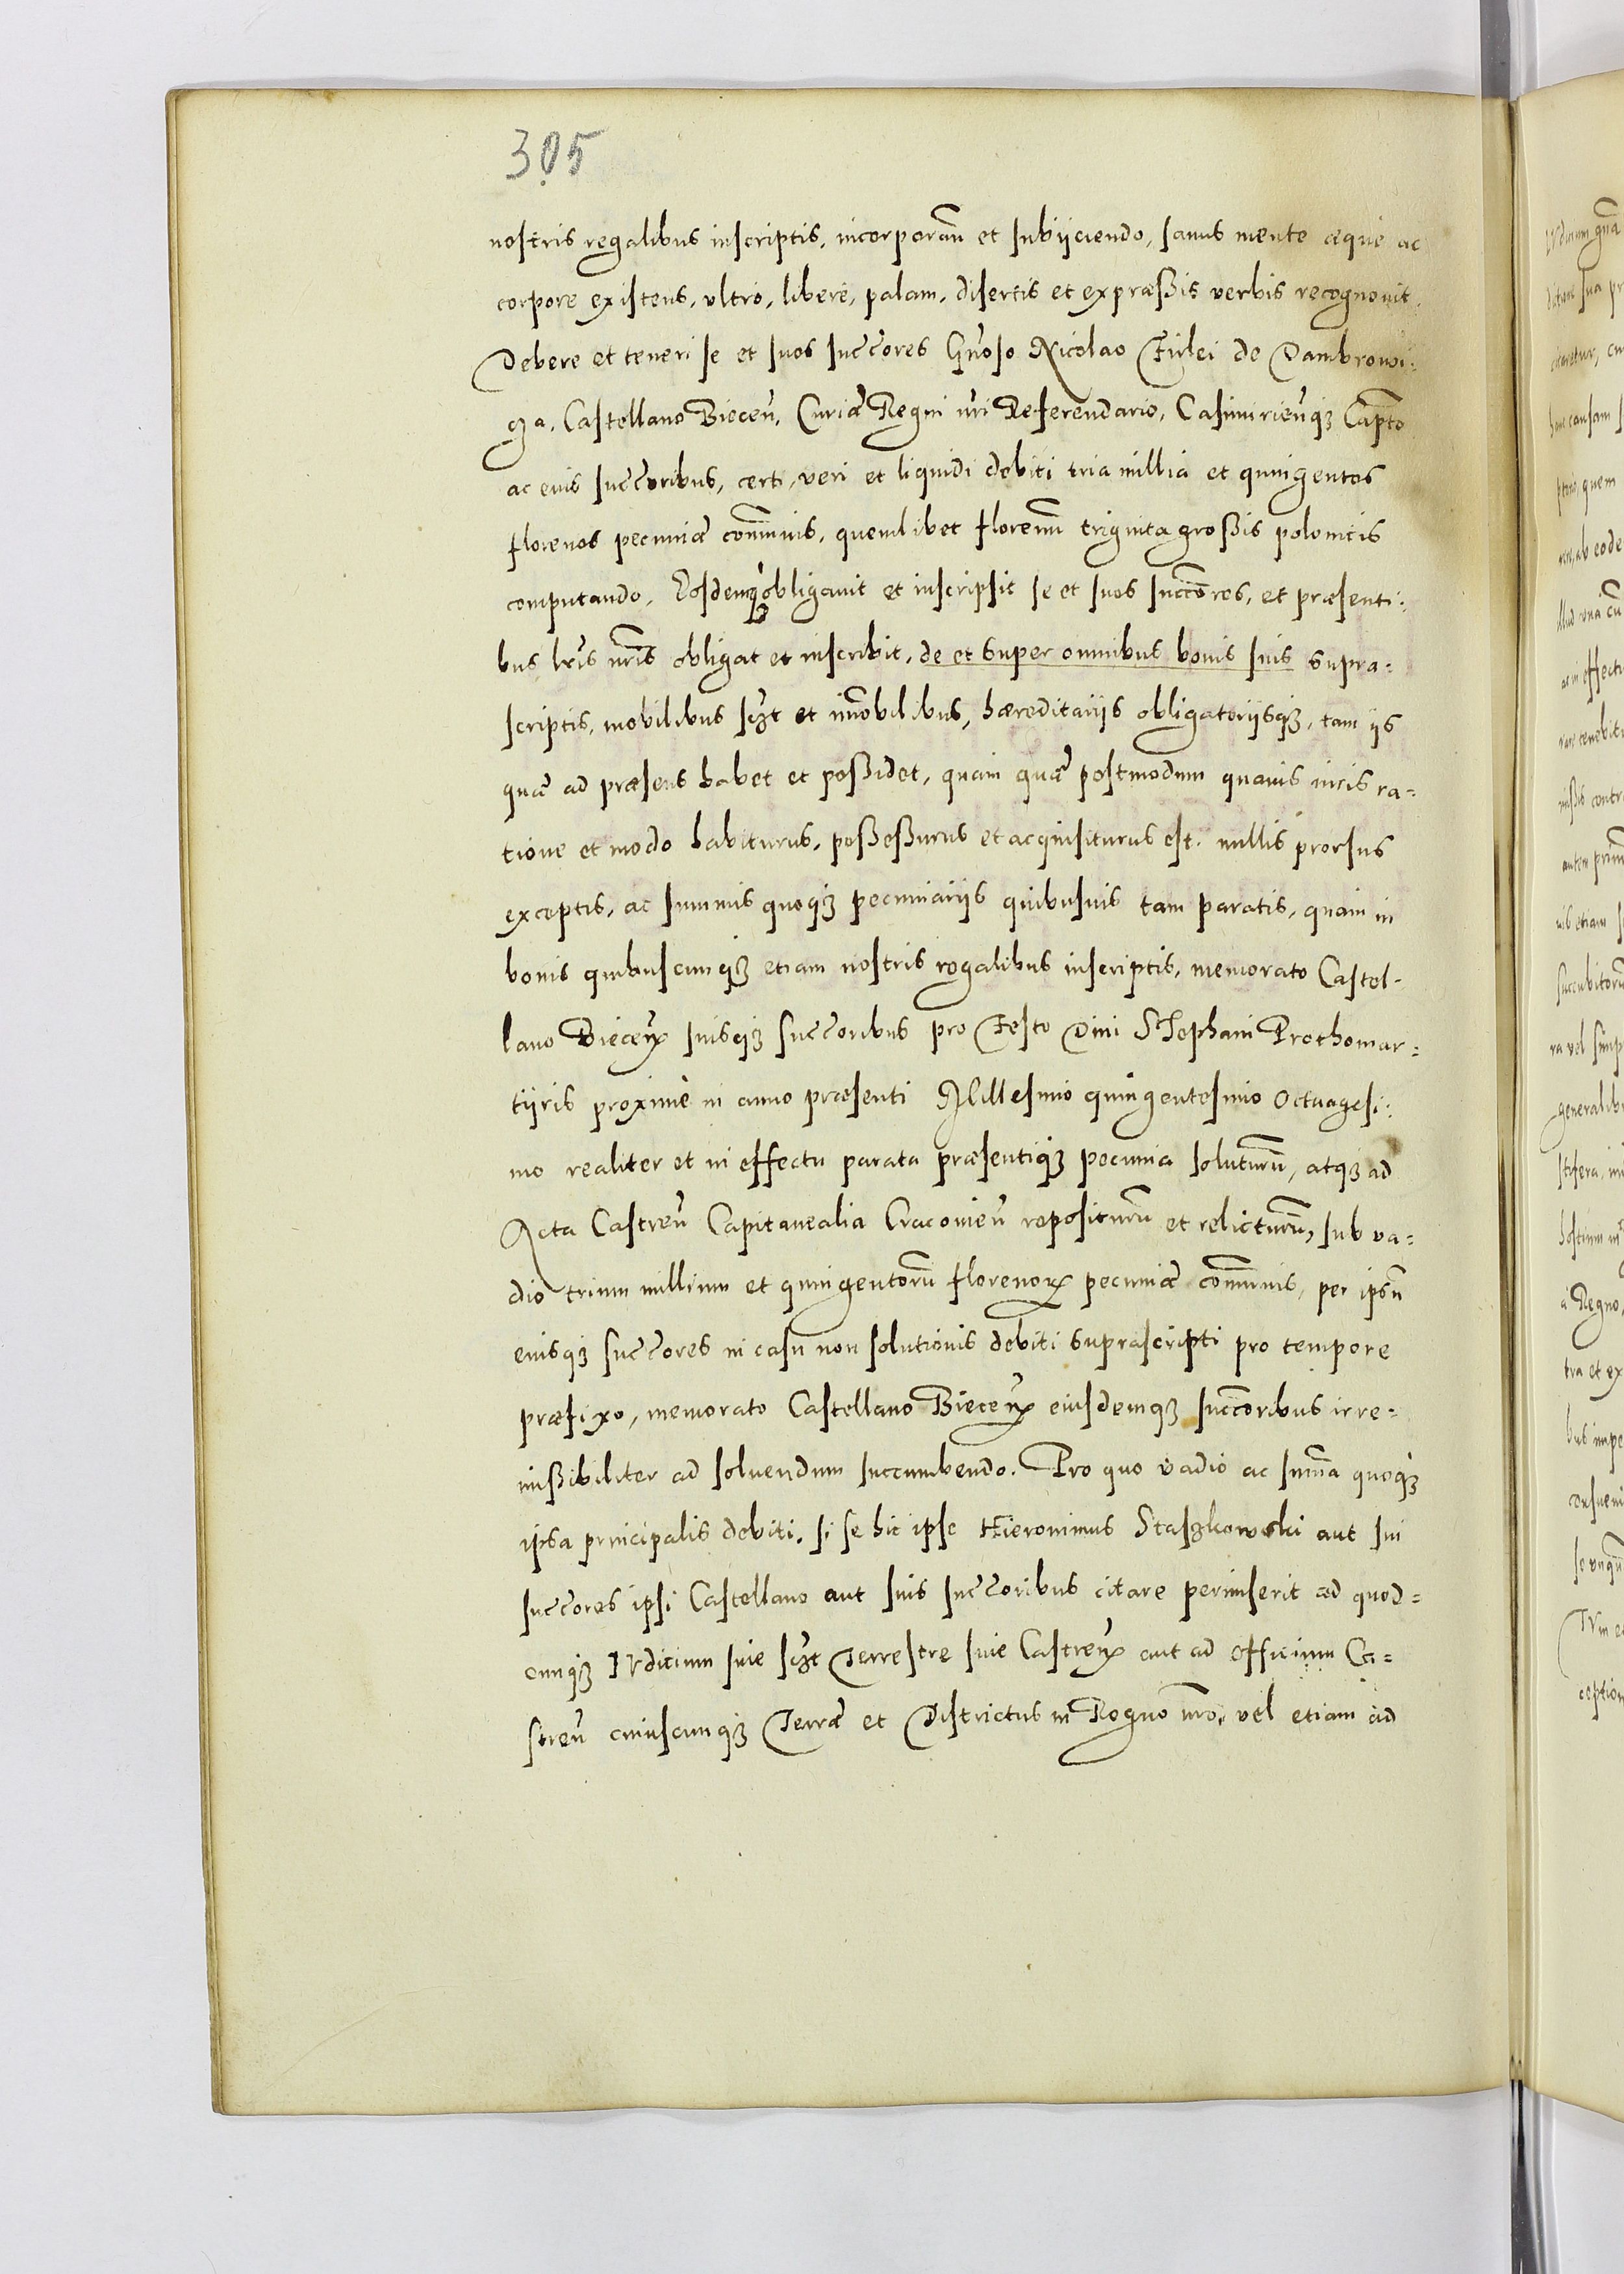 305
nostris regalibus inscriptis, incorporan̄ et subijciendo, sanus mente æque ac
corpore existens, ultro, liberè, palam, disertis et expræssis verbis recognouit
Debere et teneri se et suos succores Gn̄oso Nicolao Firlei de Dambrowi:
cza, Castellano Biecen̄, Curiæ Regni nr̄i Referendario, Casimirien̄q3 Capt̄o
ac eius succoribus, certi, veri et liquidi debiti tria millia et quingentos
florenos pecuniæ com̄unis, quemlibet florenum triginta grossis polonicis
computando, Eosdemq3 obligauit et inscripsit se et suos succores, et præsenti:
bus lr̄is nr̄is obligat et inscribit, de et super omnibus bonis suis supra=
scriptis, mobilibus sczt et im̄obilibus, hæreditarijs obligatorijsq3, tam ijs
quæ ad præsens habet et possidet, quam quæ postmodum quauis iuris ra=
tione et modo habiturus, possessurus et acquisiturus est. nullis prorsus
exceptis, ac summis quoq3 pecuniarijs quibusuis tam paratis, quam in
bonis quibuscunq3 etiam nostris regalibus inscriptis, memorato Castel-
lano Biecen̄ suisq3 succoribus pro Festo Diui Stephani Prothomar=
tijris proximè in anno præsenti Millesimo quingentesimo Octuagesi:
mo realiter et in effectu parata præsentiq3 pecunia soluturū, atq3 ad
Acta Castren̄ Capitanealia Cracouien̄ repositurū et relicturū, sub va=
dio trium millium et quingentorū florenor̄ pecuniæ com̄unis, per ipsū
eiusq3 succores in casu non solutionis debiti suprascripti pro tempore
præfixo, memorato Castellano Biecen̄ eiusdemq3 succoribus irre=
missibiliter ad soluendum succumbendo. Pro quo vadio ac sum̄a quoq3
ipsa principalis debiti, si se hic ipse Hieronimus Staszkowski aut sui
succores ipsi Castellano aut suis succoribus citare permiserit ad quod=
cunq3 Iudicium siue sczt Terrestre siue Castren̄ aut ad officium Ca=
stren̄ cuiuscunq3 Terræ et Districtus in Regno nr̄o, vel etiam ad